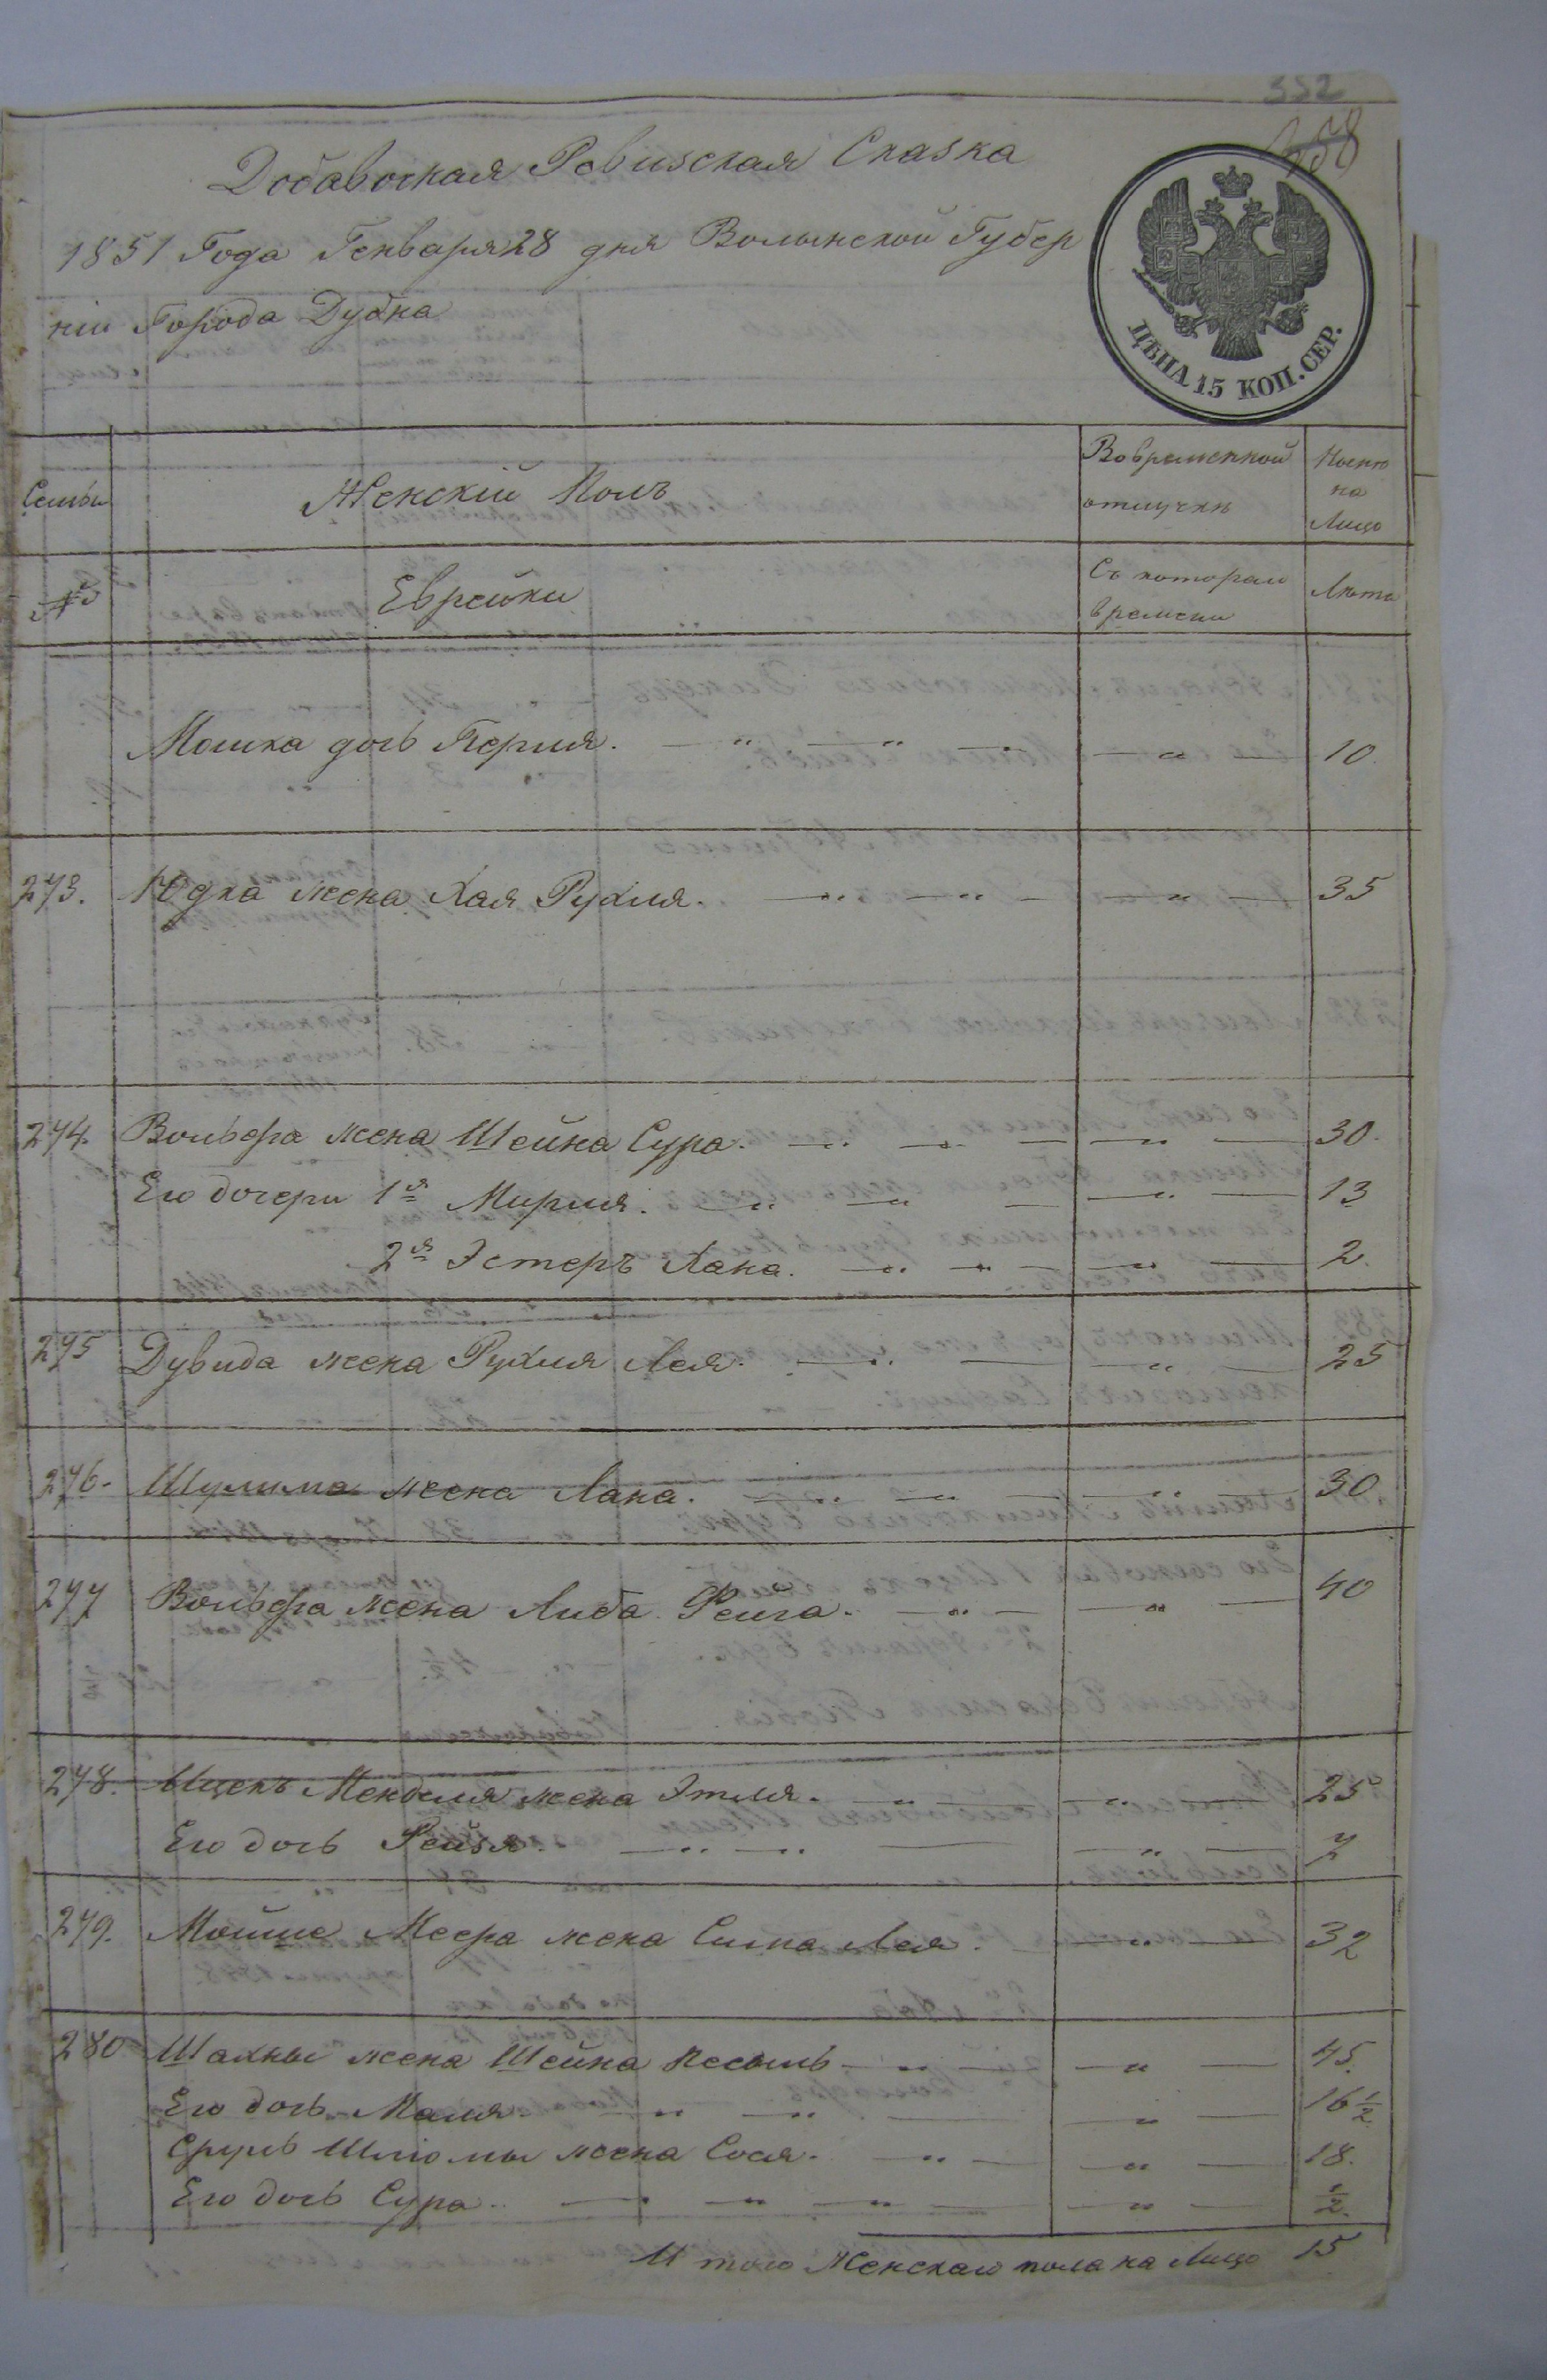 352
358
Добавочная Ревизская Сказка
1851 Года Генваря 28 дня Волынской Губер
ніи Города Дубна
ЦѢНА 15 КОП. СЕР.
Семьи Женскій Полъ Вовременной отлучкѣ Ныенѣ на Лицо
№ Еврейки Съ котораго времени Лѣта
Мошка дочь Перля. — „ — „ — — „ — 10.
273. Юдка жена Хая Рухля. — „ — „ — — „ — 35
274. Вольфа жена Шейна Сура. — „ — „ — — „ — 30.
Его дочери 1я Мирля. — „ — „ — — „ — 13
2я Эстеръ Хана. — „ — „ — — „ — 2.
275 Дувида жена Рухля Лея. — „ — — „ — 25
276. Шулима жена Хана. — „ — „ — — „ — 30
277 Вольфа жена Либа Фейга. — „ — — „ — 40
278. Ицекъ Менделя жена Этля. — „ — — „ — 25
Его дочь Рейзя. — „ — „ — — „ — 7
279. Мойше Меера жена Сима Лея. — „ — 32
280 Шахны жена Шейна Песыль — „ — — „ — 45.
Его дочь Маля. — „ — „ — — „ — 16 1/2
Сруль Шліомы жена Сося. — „ — — „ — 18.
Его дочь Сура. — „ — „ — „ — — „ — 1/2.
И того Женскаго пола на Лицо 15